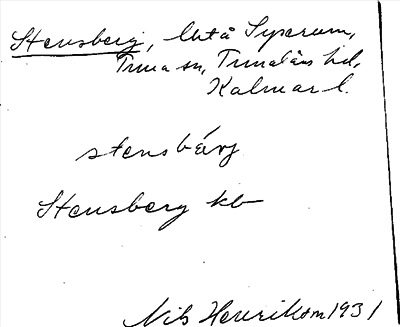 Stensberg, lht å Syserum,
Tuna sn, Tunaläns hd,
Kalmar l.
stensbärj
Stensberg kb
Nils Henrikson 1931